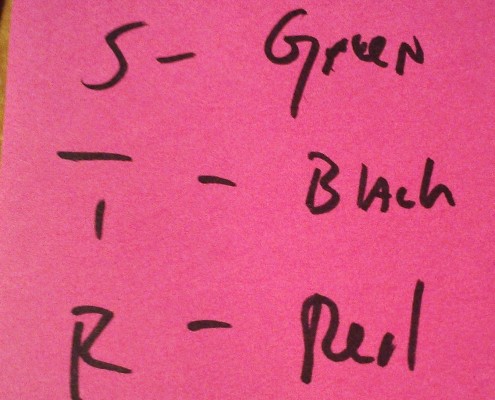 S - Green
T - Black
R - Red